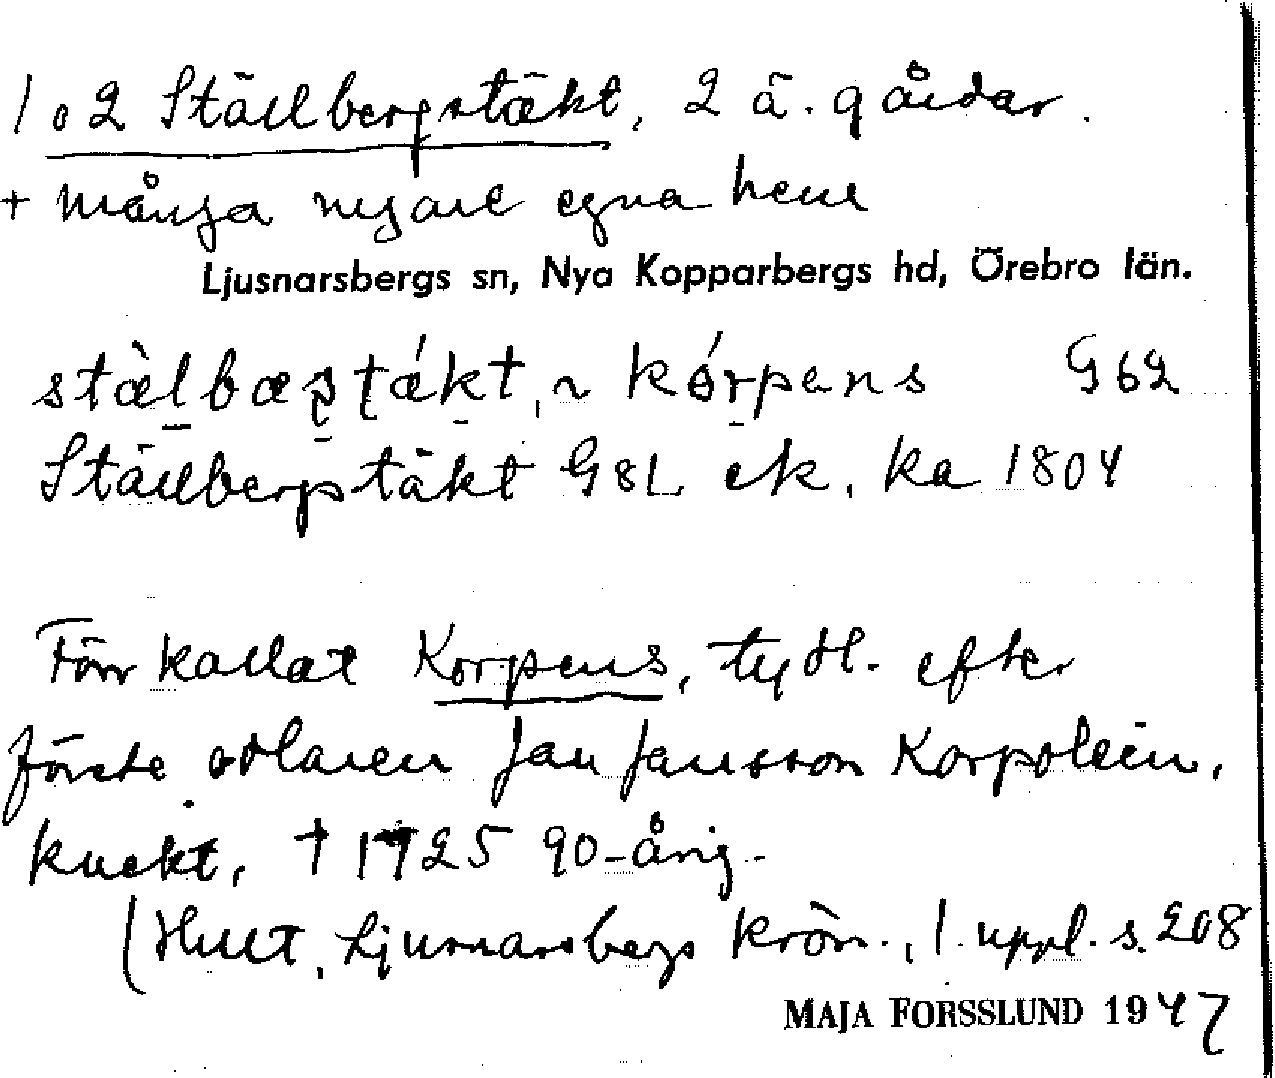 1 o 2 Ställbergstäkt, 2 ä. gårdar.
+ många nyare egna hem
Ljusnarsbergs sn, Nya Kopparbergs hd, Örebro län.
stæ̀lbæʂʈǽkt, ~ kórpens G62
Ställbergstäkt GSL ek. ka 1804
Förr kallat Korpens, tydl. efter
förste odlaren Jan Jansson Korpolein,
knekt, † 1725 90-årig.
(Hult, Ljusnarsbergs krön., 1. uppl. s. 208
MAJA FORSSLUND 1947